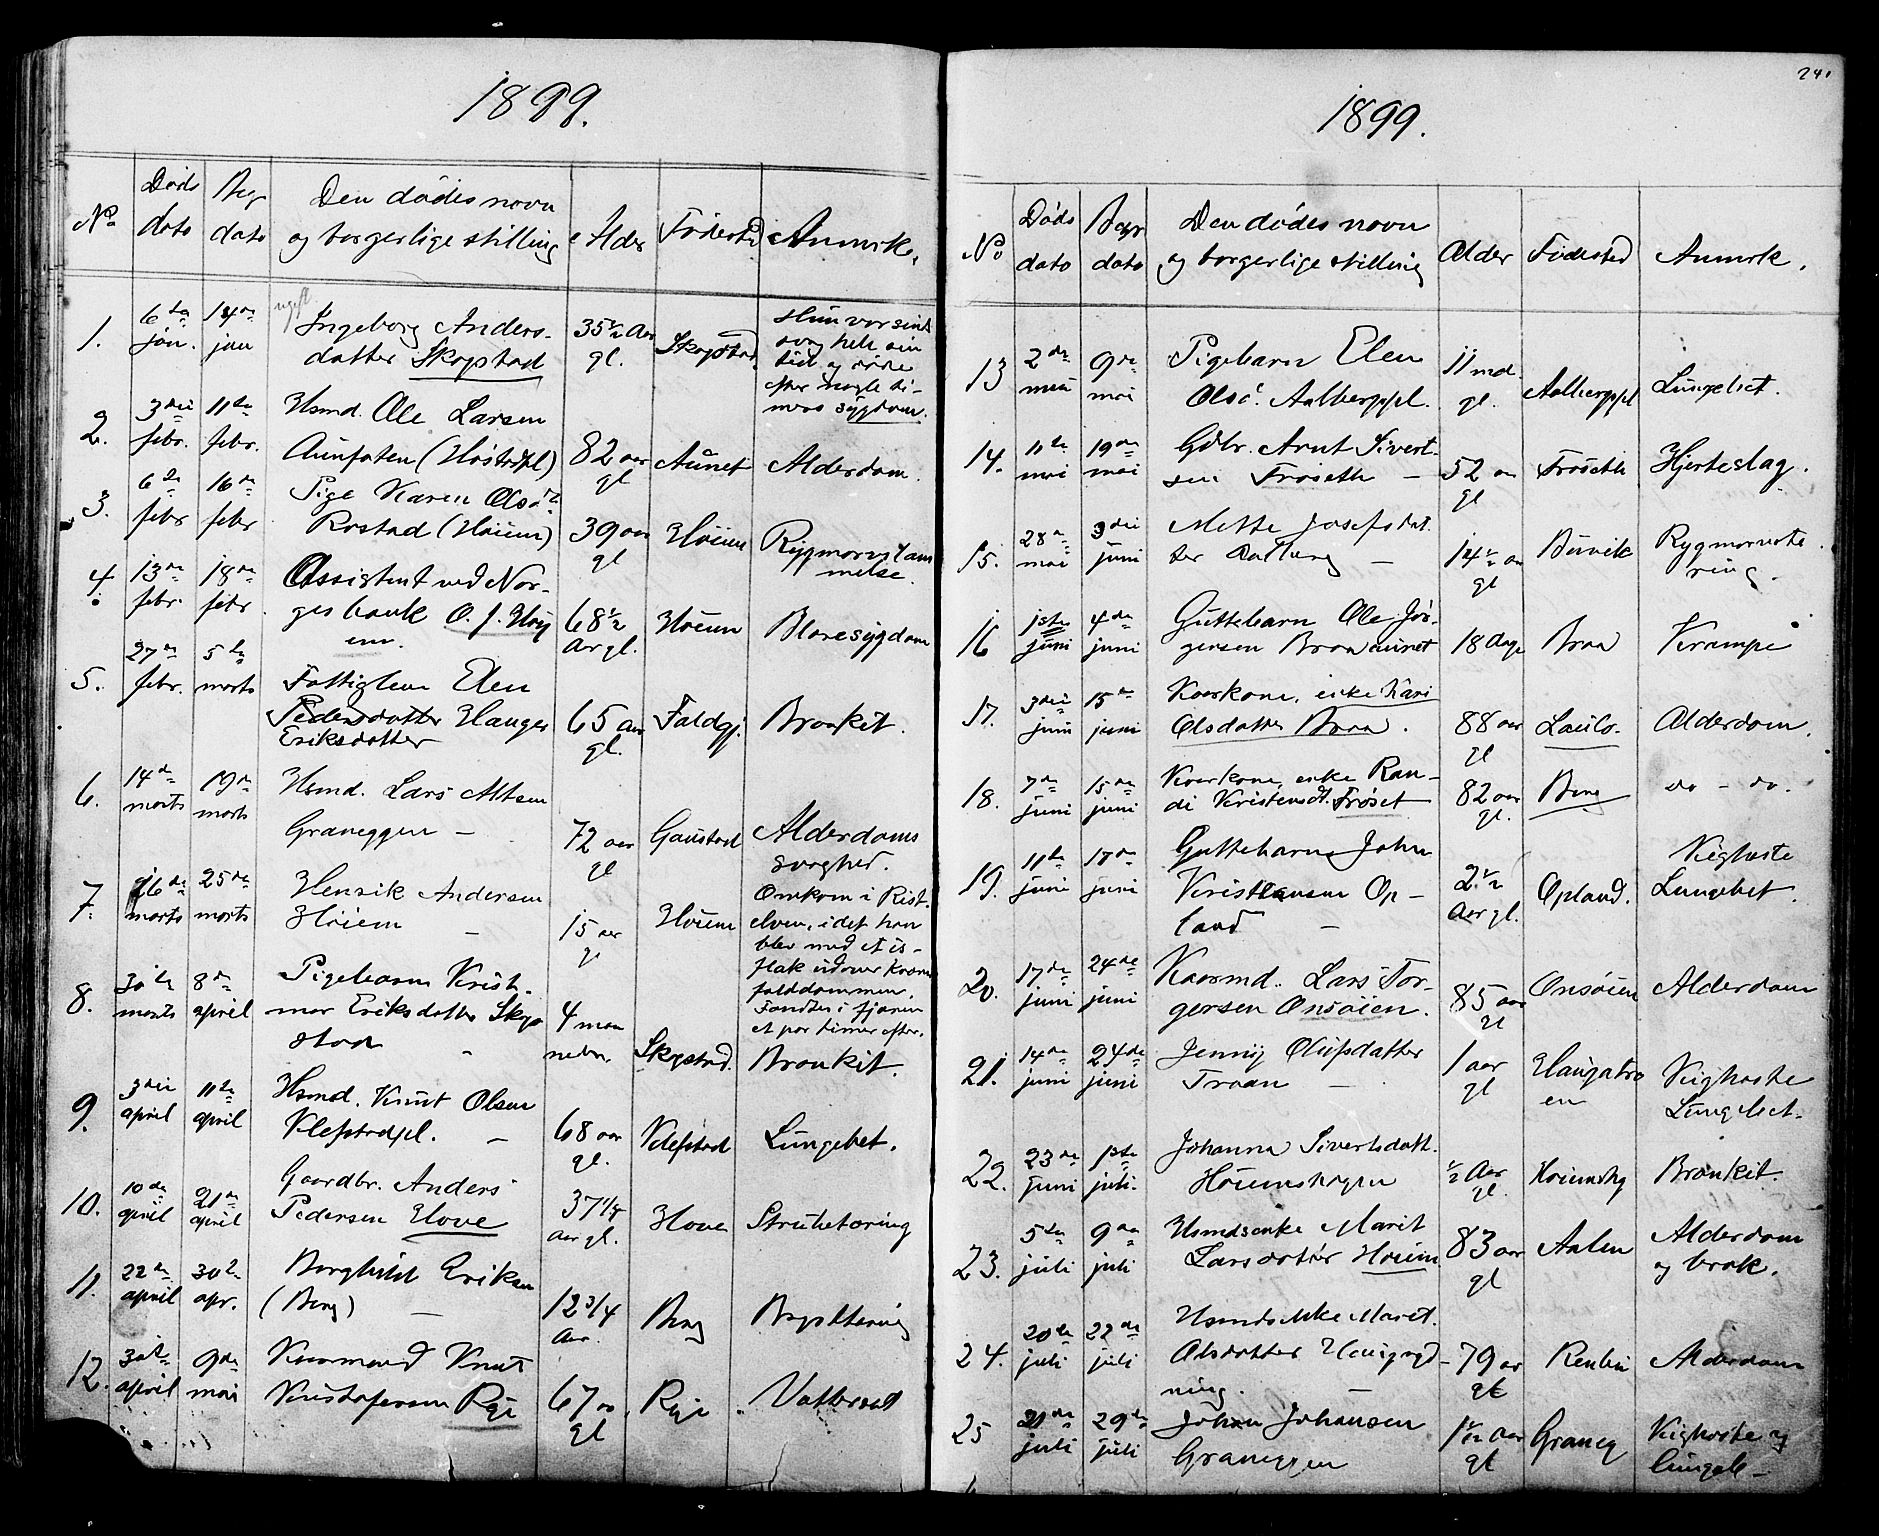 1899.
No
Døds dato
Beg dato
Den dødes navn og borgerlige stilling
Alder
Fødested
Anmrk.
1. 6te jan. 14de jan ugift Ingeborg Andersdatter Skogstad 35 1/2 Aar gl. Skogstad.
Hun var sind
svag hele sin
tid og døde
efter nogle ti-
mers sygdom.
2. 3die febr. 11te febr. Hsmd. Ole Larsen
Aunfaten (Høstadpl) 82 aar gl Aunet Alderdom.
3. 6te febr 16de febr Pige Karen Olsd.
Rostad (Høiem) 39 aar gl Høiem Rygmarvslammelse.
4. 13de febr. 18de febr. Assistent ved Nor-
ges bank O. J. Høy
em. 68 1/2 Aar gl. Høiem Blæresygdom
5. 27de febr. 5te marts Fattiglem Elen
Pedersdatter Hauger
Eriksdatter 65 aar gl. Foldgj. Bronkit.
6. 14de marts 19de marts Hsmd. Lars Altsen
Graneggen — 72 aar gl Gaustad Alderdoms
svaghed.
7. 16de marts 25de marts Henrik Andersen
Høiem — 15 aar gl Høiem
Omkom i Rist.
elven, idet han
blev med et is-
flak udover kvern
folddammen.
Fandtes i fjæren
et par timer efter.
8. 30te marts 8de april Pigebarn Krist-
mor Eriksdatter Skog
stad 4 maaneder. Skogstad. Bronkit.
9. 3die april 11te april Hsmd. Knut Olsen
Klefstadpl. — 68 aar gl. Klefstad Lungebet.
10. 10de april 21de april Gaardbr. Anders
Pedersen Hove 37 1/4 aar gl. Hove Strubetæring
11. 22de april 30te apr. Borghild Eriksen
(Berg) — 12 3/4 Aar. Berg Brysttæring
12. 30te april 9de mai Kaarmand Knut
Kristofersen Rye 67 aar gl. Rye. Vattersot

241
1899.
No
Døds dato
Begr dato
Den dødes navn og borgerlige stilling
Alder
Fødested
Anmrk.
13 2de mai 9de mai Pigebarn Elen
Olsd. Aalbergpl. 11 md. gl. Aalbergpl Lungebet.
14. 11te mai 19de mai Gdbr. Arnt Sivert-
sen Frøseth — 52 aar gl Frøseth Hjerteslag.
15. 28de mai 3die juni Mette Josefsdat
ter — 14 1/2 aar gl Buvik Rygmarvstæring.
16 1ste juni 4de juni Guttebarn Ole Jør-
gensen Braaaunet 18 dage Braa Krampe
17. 3die juni 15de juni Kaarkone, enke Kari
Olsdatter Braa. 88 aar gl Alderdom.
18. 7de juni 15de juni Kaarkone, enke Ran-
di Kristensdt. Frøset 82 aar gl. Berg do - do.
19. 11te juni 17de juni Guttebarn John
Kristiansen Op-
land — 2 1/2 Aar gl. Opland. Kighoste
Lungebet.
20. 17de juni 24de juni Kaarmd. Lars Tor-
gersen Onsøien. 85 aar gl Onsøien Alderdom
21. 14de juni 24de juni Jenny Olufsdatter
Traan — 1 aar gl Haugatroen Kighoste
Lungebet.
22. 23de juni 1ste juli. Johanna Sivertsdatt.
Høiemshagen 1/2 Aar gl. Høiemshg Bronkit.
23. 5te juli 9de juli Hsmdsenke Marit
Larsdatter Høiem 83 aar gl Aalen Alderdom
og brok.
24. 20de juli 22de juli Hsmdsenke Maret.
Olsdatter Haugryd-
ning. — 79 aar gl Alderdom
25 21de juli 29de juli Johan Johansen
Graneggen 1 1/2 Aar gl Graneg Kighoste og
lungeb-